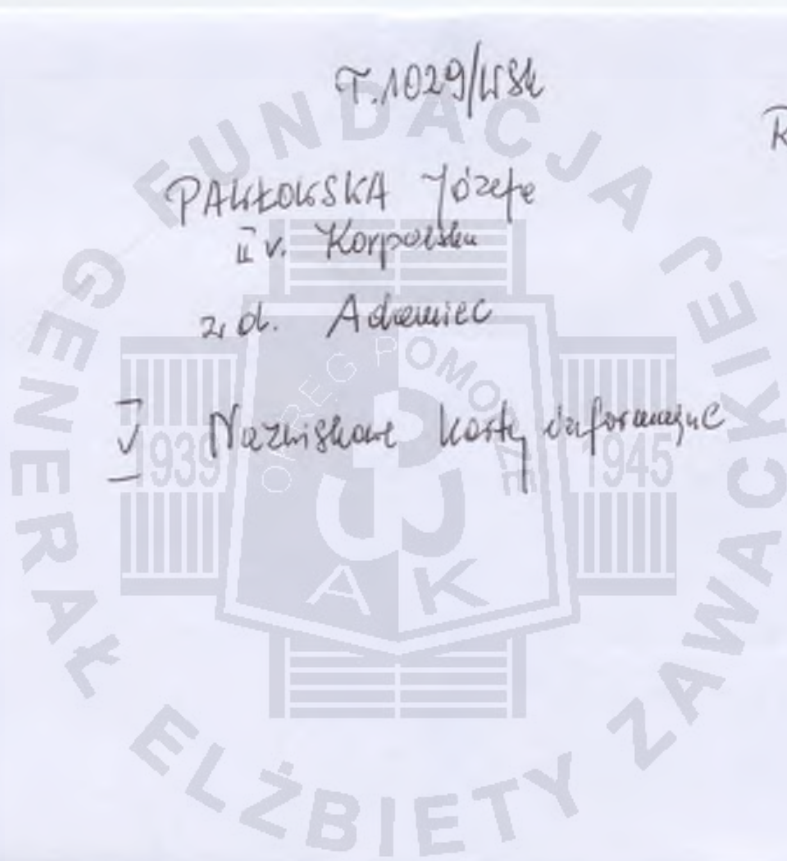 T.1029/WSK
R
PAWŁOWSKA Józefa
II v. Korpalska
z d. Adamiec
V Nazwiskowe karty informacyjne
FUNDACJA
GENERAŁ ELŻBIETY ZAWACKIEJ
OKRĘG POMORZE
1939
1945
AK